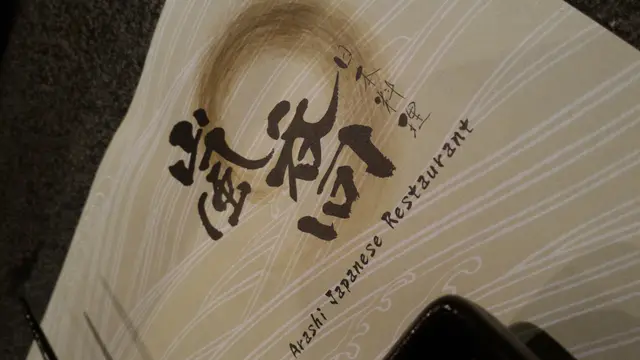 日本料理
嵐
Arashi Japanese Restaurant